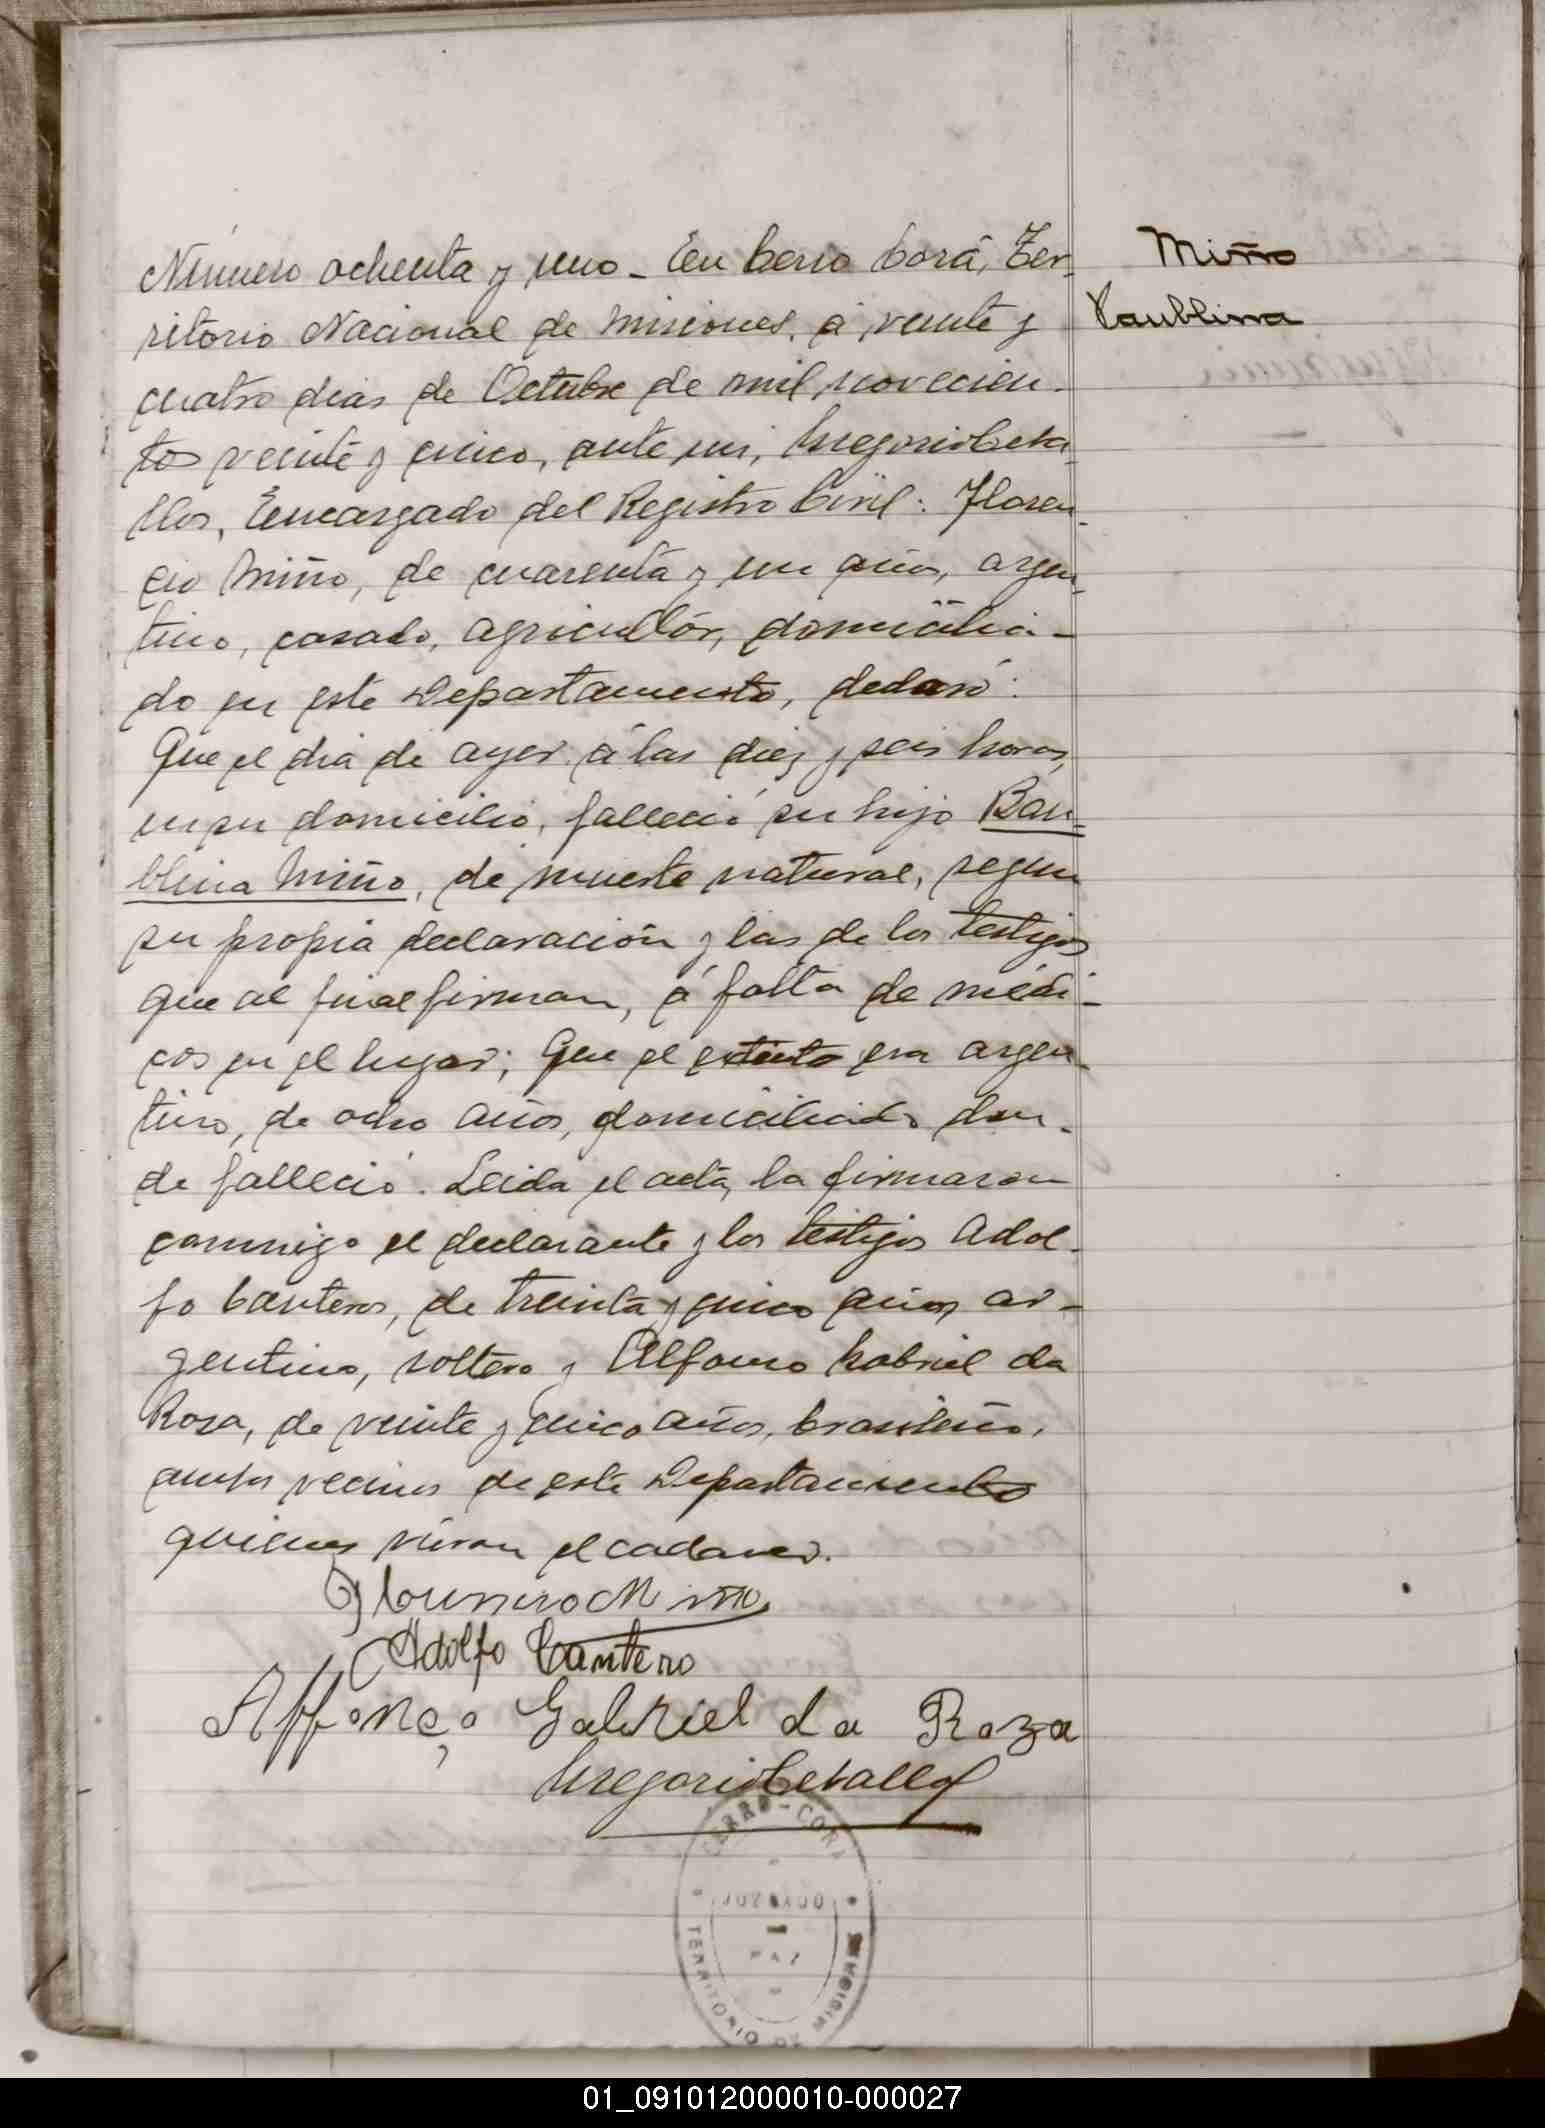 Número ochenta y uno - En Cerro Corá, Ter-
ritorio Nacional de Misiones, á veinte y
cuatro dias de Octubre de mil novecien-
tos veinte y cinco, ante mi, Gregorio Ceba-
llos, Encargado del Registro Civil: Floren-
cio Miño, de cuarenta y un años, argen-
tino, casado, agricultór, domicilia-
do en este Departamento, declaró:
Que el dia de ayer á las diez y seis horas,
en su domicilio, falleció su hijo Bau-
blina Miño, de muerte natural, segun
su propia declaración y las de los testigos
que al final firman, á falta de médi-
cos en el lugar; Que el extinto era argen-
tino, de ocho años, domiciliado don-
de falleció. Leida el acta, la firmaron
conmigo el declarante y los testigos Adol-
fo Canteros, de treinta y cinco años, ar-
gentino, soltero y Alfonso Gabriel da
Rosa, de veinte y cinco años, brasileño,
ambos vecinos de este Departamento
quienes vieron el cadaver.
Miño
Paublina
Miño
Adolfo Cantero
Affonço Gabriel da Roza
Gregorio Ceballos
CERRO-CORÁ
JUZGADO
PAZ
TERRITORIO DE MISIONES
01_091012000010-000027